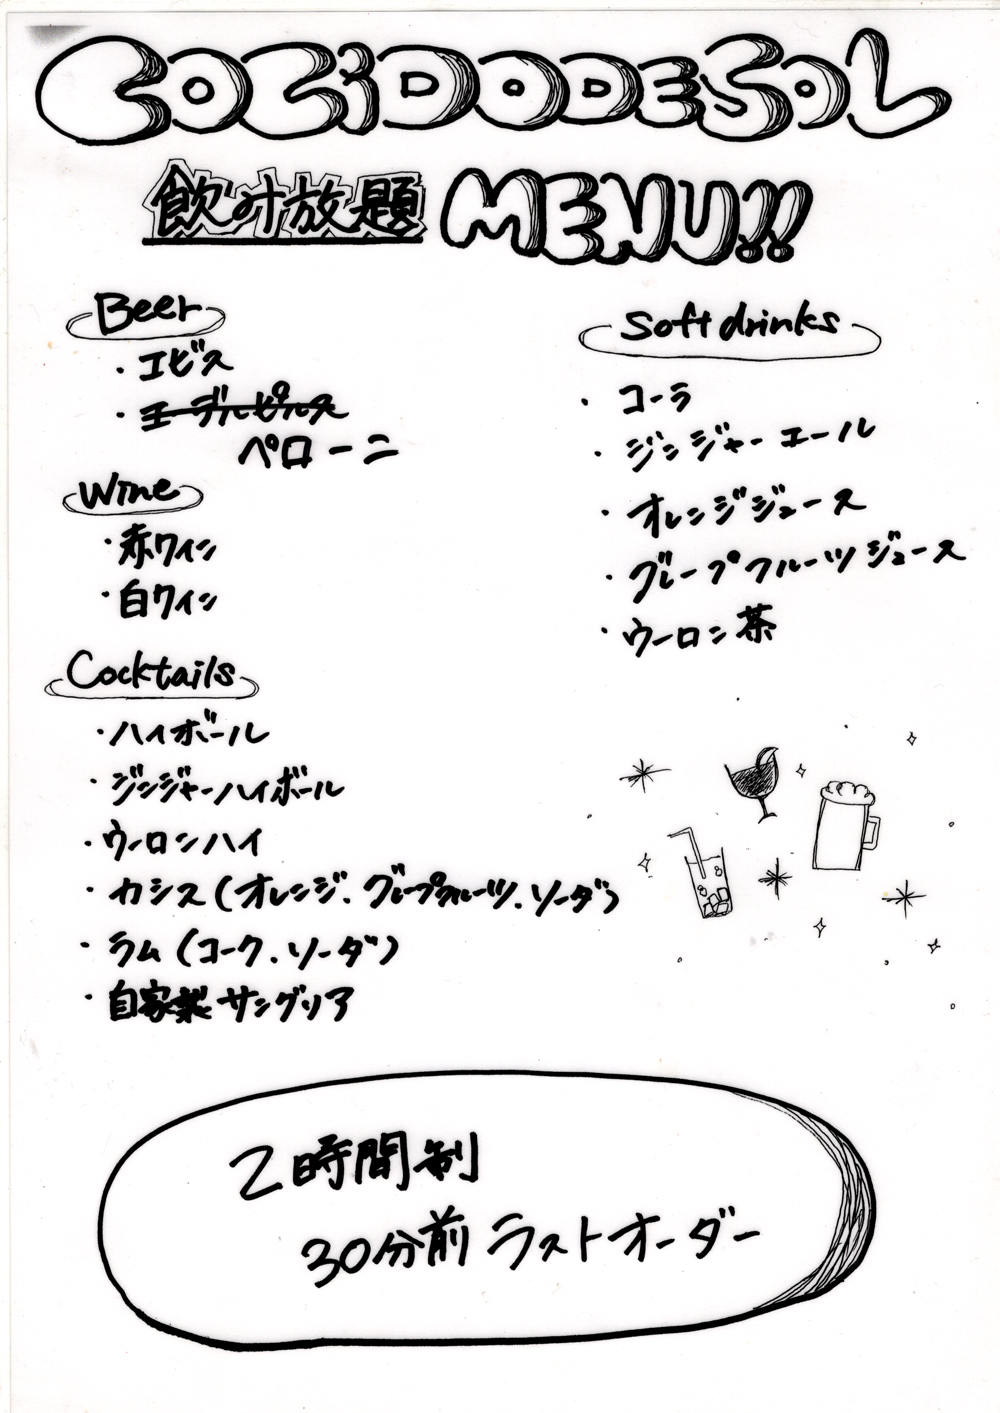 COCIDODESOL
飲み放題 MENU!!
Beer
・エビス
・エーデルピルス
ペローニ
Wine
・赤ワイン
・白ワイン
Cocktails
・ハイボール
・ジンジャーハイボール
・ウーロンハイ
・カシス(オレンジ、グレープフルーツ、ソーダ)
・ラム(コーク、ソーダ)
・自家製サングリア
Soft drinks
・コーラ
・ジンジャーエール
・オレンジジュース
・グレープフルーツジュース
・ウーロン茶
2時間制
30分前 ラストオーダー